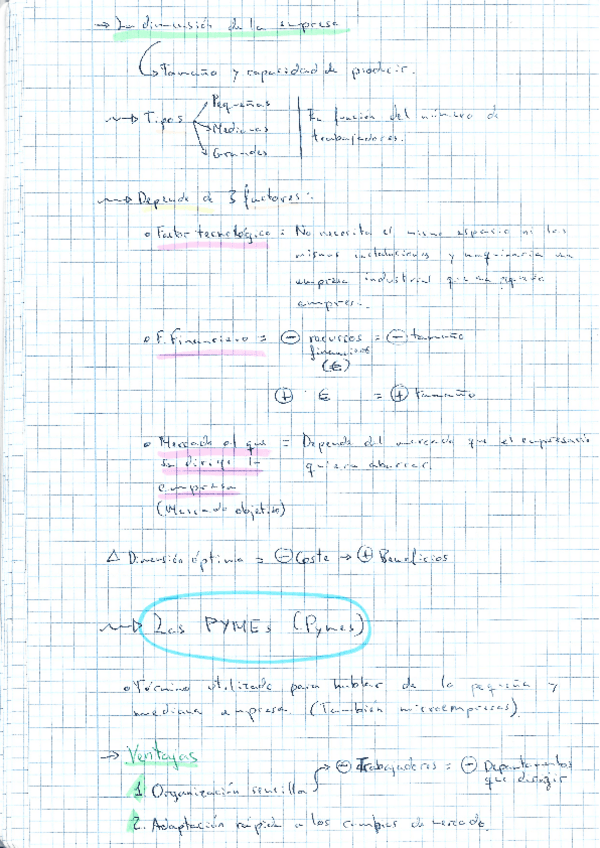 → La dimensión de la empresa
Tamaño y capacidad de producir.
→ Tipos
Pequeñas
→ Medianas
Grandes
En función del número de
trabajadores.
→ Depende de 3 factores:
o Factor tecnológico = No necesita el mismo espacio ni las
mismas instalaciones y maquinaria una
empresa industrial que una
empresa
o F. Financiero = ⊖ recursos = ⊖ tamaño
financieros
(€)
⊕ € = ⊕ tamaño
o Mercado al que = Depende del mercado que el empresario
se dirige la quiera abarcar.
empresa
(Mercado objetivo)
△ Dimensión óptima = ⊖ Coste → ⊕ Beneficios
→ Las PYMEs (Pymes)
o Término utilizado para hablar de la pequeña y
mediana empresa. (También microempresas)
→ Ventajas
1. Organización sencilla → ⊖ Trabajadores = ⊖ Departamentos
que dirigir
2. Adaptación rápida a los cambios de mercado.